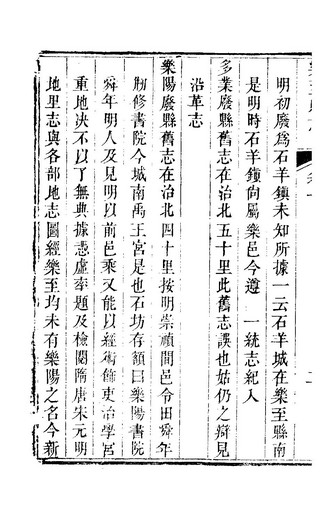 明初廢爲石羊鎭未知所據一云石羊城在樂至縣南
是明時石羊鎭向屬樂邑今遵 一統志紀入
多業廢縣舊志在治北五十里此舊志誤也姑仍之辯見
沿革志
樂陽廢縣舊志在治北四十里按明崇禎間邑令田舜年
剏修書院今城南禹王宮是也石坊存額曰樂陽書院
舜年明人及見明以前邑乘又能以經術飾吏治學宮
重地決不以了無典據憑虛牽題及檢閱隋唐朱元明
地里志與各部地志圖經樂至均未有樂陽之名今新